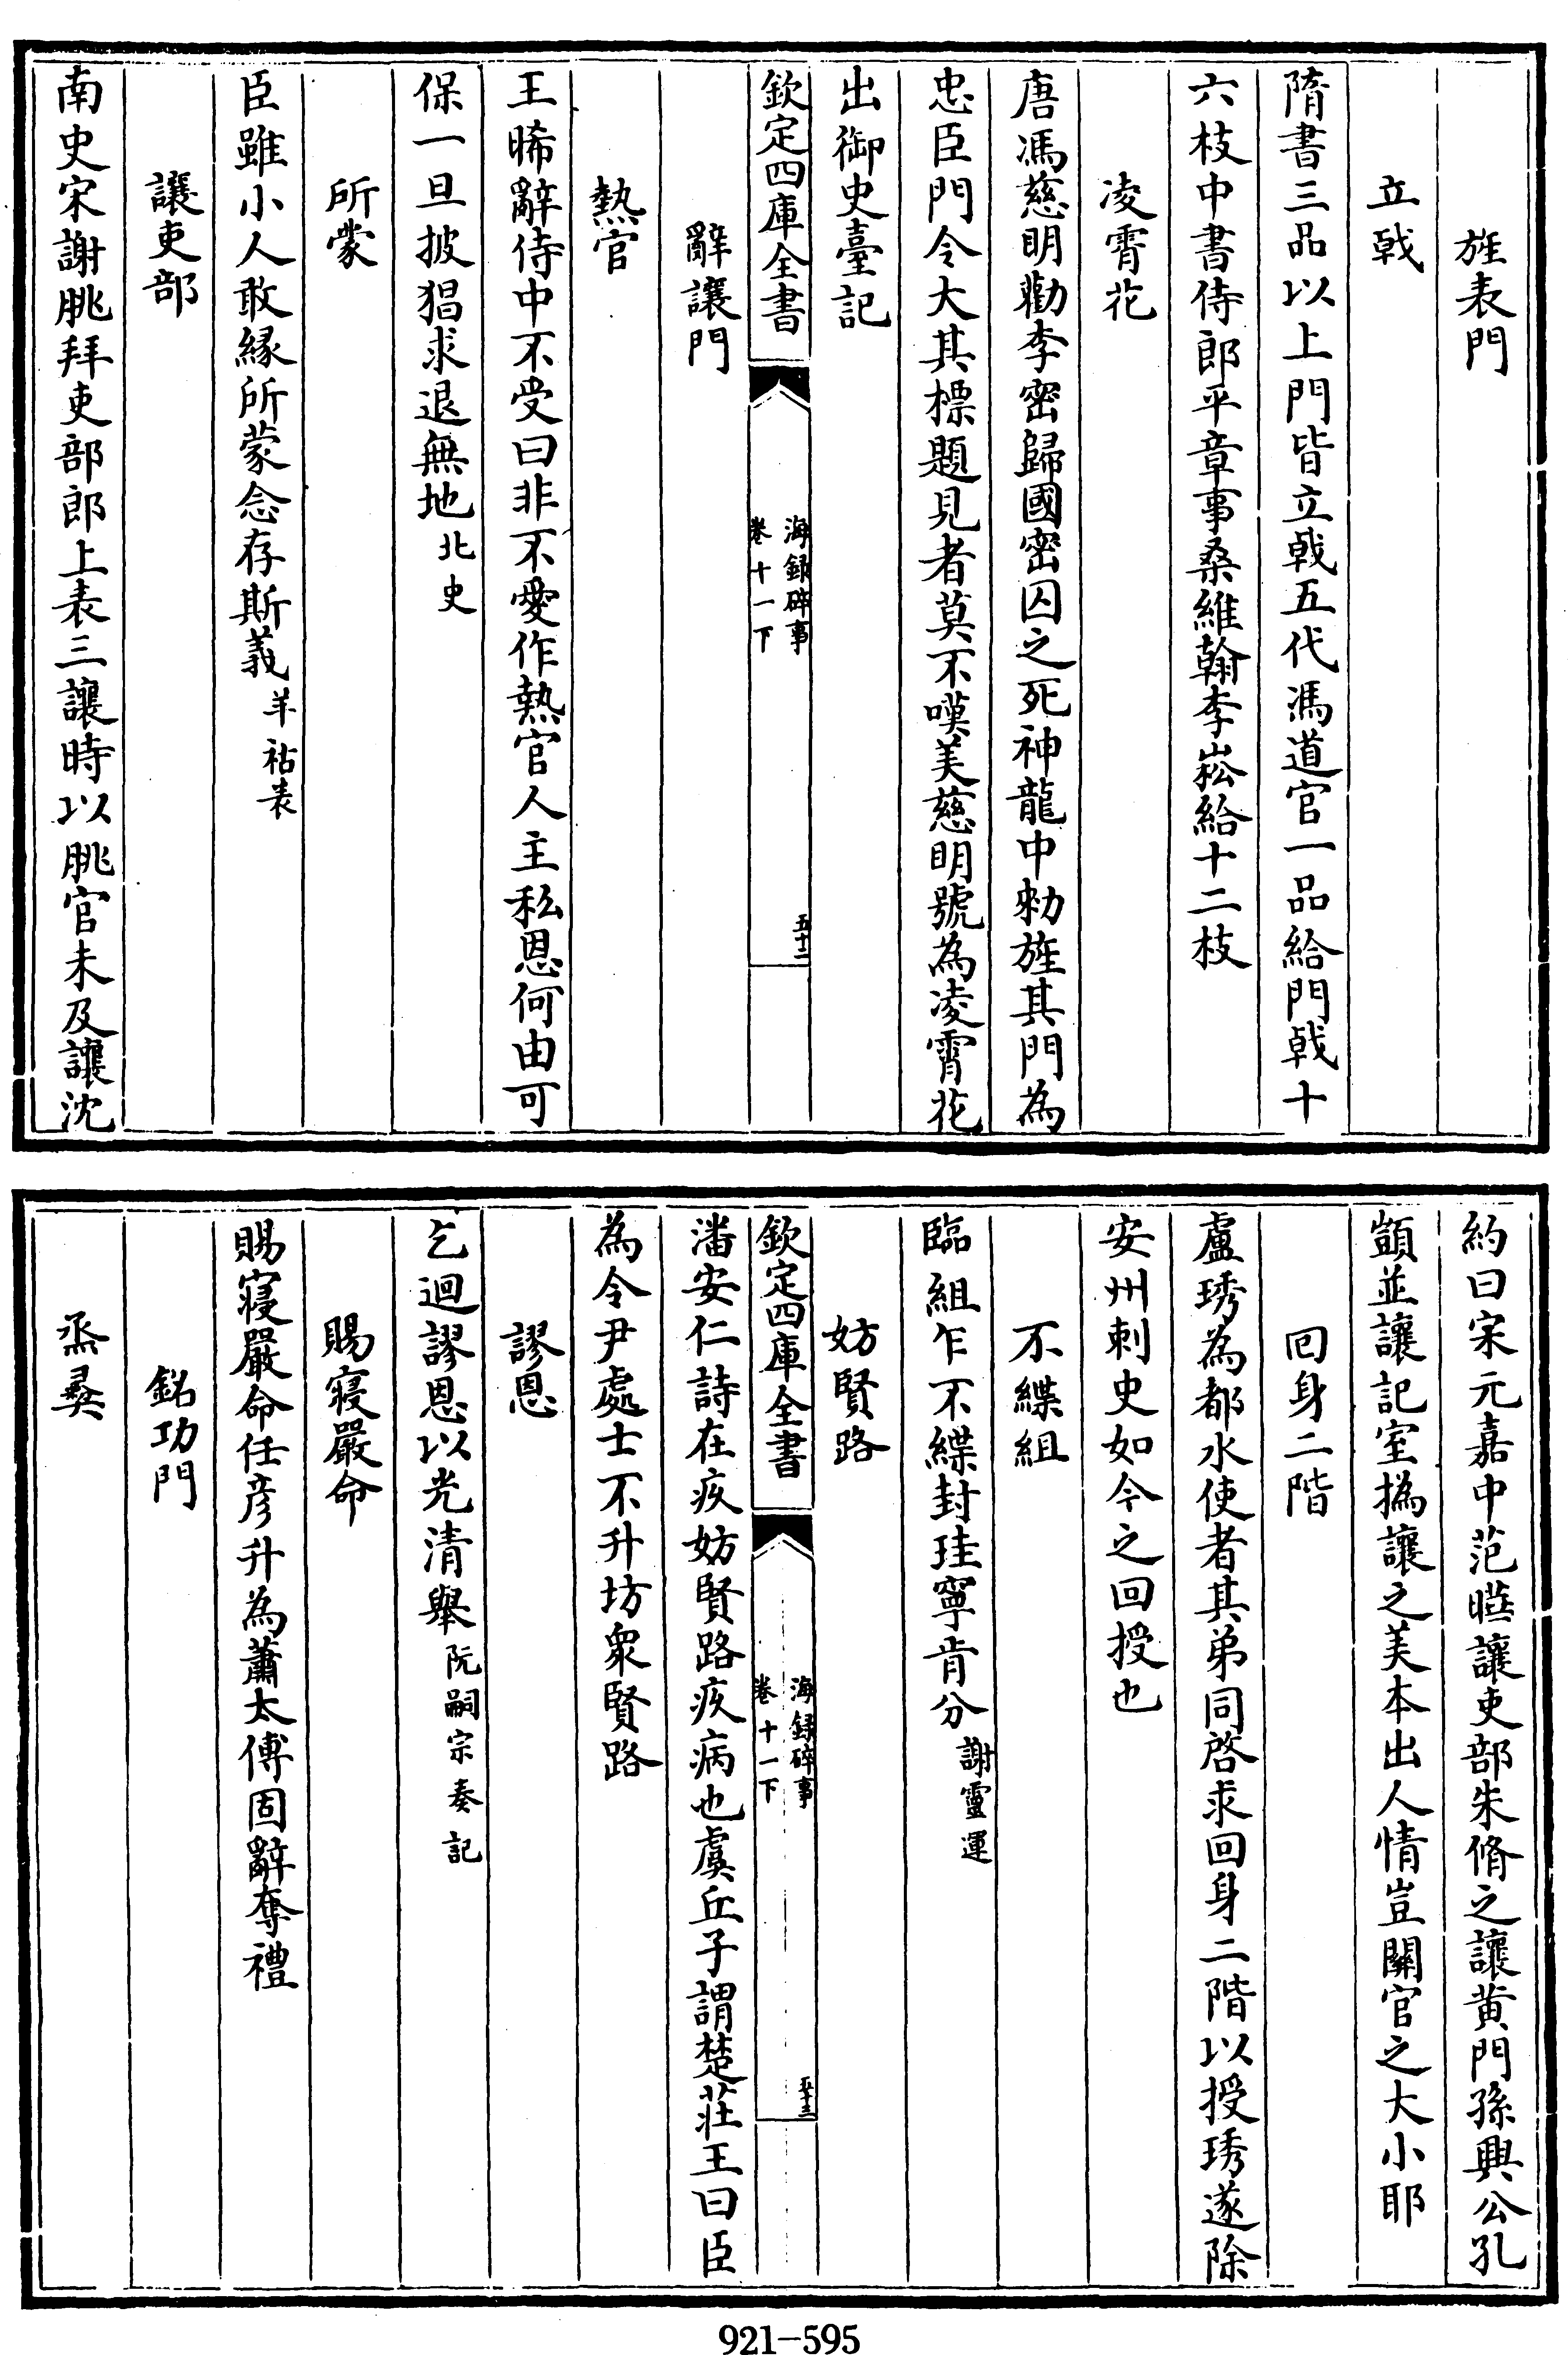 旌表門
立戟
隋書三品以上門皆立戟五代馮道官一品給門戟十
六枝中書侍郎平章事桑維翰李崧給十二枝
凌霄花
唐馮慈明勸李密歸國密囚之死神龍中勑旌其門為
忠臣門令大其標題見者莫不嘆美慈明號為凌霄花
出御史臺記
欽定四庫全書
海録碎事
卷十一下
五十二
辭讓門
熱官
王晞辭侍中不受曰非不愛作熱官人主私恩何由可
保一旦披猖求退無地北史
所蒙
臣雖小人敢緣所蒙念存斯義羊祜表
讓吏部
南史宋謝朓拜吏部郎上表三讓時以朓官未及讓沈
約曰宋元嘉中范曄讓吏部朱脩之讓黄門孫興公孔
顗並讓記室撝讓之美本出人情豈關官之大小耶
回身二階
盧琇為都水使者其弟同啓求回身二階以授琇遂除
安州刺史如今之回授也
不緤組
臨組乍不緤封珪寧肯分謝靈運
妨賢路
欽定四庫全書
海録碎事
卷十一下
五十三
潘安仁詩在疚妨賢路疚病也虞丘子謂楚莊王曰臣
為令尹處士不升坊衆賢路
謬恩
乞迴謬恩以光清舉阮嗣宗奏記
賜寢嚴命
賜寢嚴命任彦升為蕭太傅固辭奪禮
銘功門
烝彝
921-595